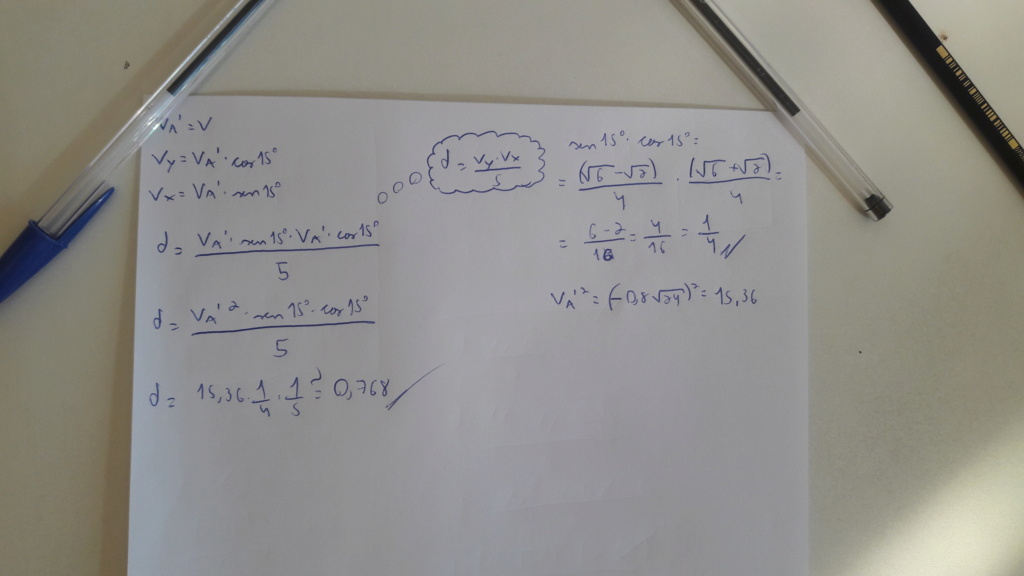 VA' = V
Vy = VA' · cos 15°
Vx = VA' · sen 15°
d = VA' · sen 15° · VA' · cos 15° / 5
d = VA'² · sen 15° · cos 15° / 5
d = 15,36 · 1/4 · 1/5 = 0,768
d = Vy · Vx / 5
sen 15° · cos 15° =
= (√6 - √2) / 4 · (√6 + √2) / 4 =
= 6 - 2 / 16 = 4 / 16 = 1 / 4
VA'² = (-0,8√24)² = 15,36